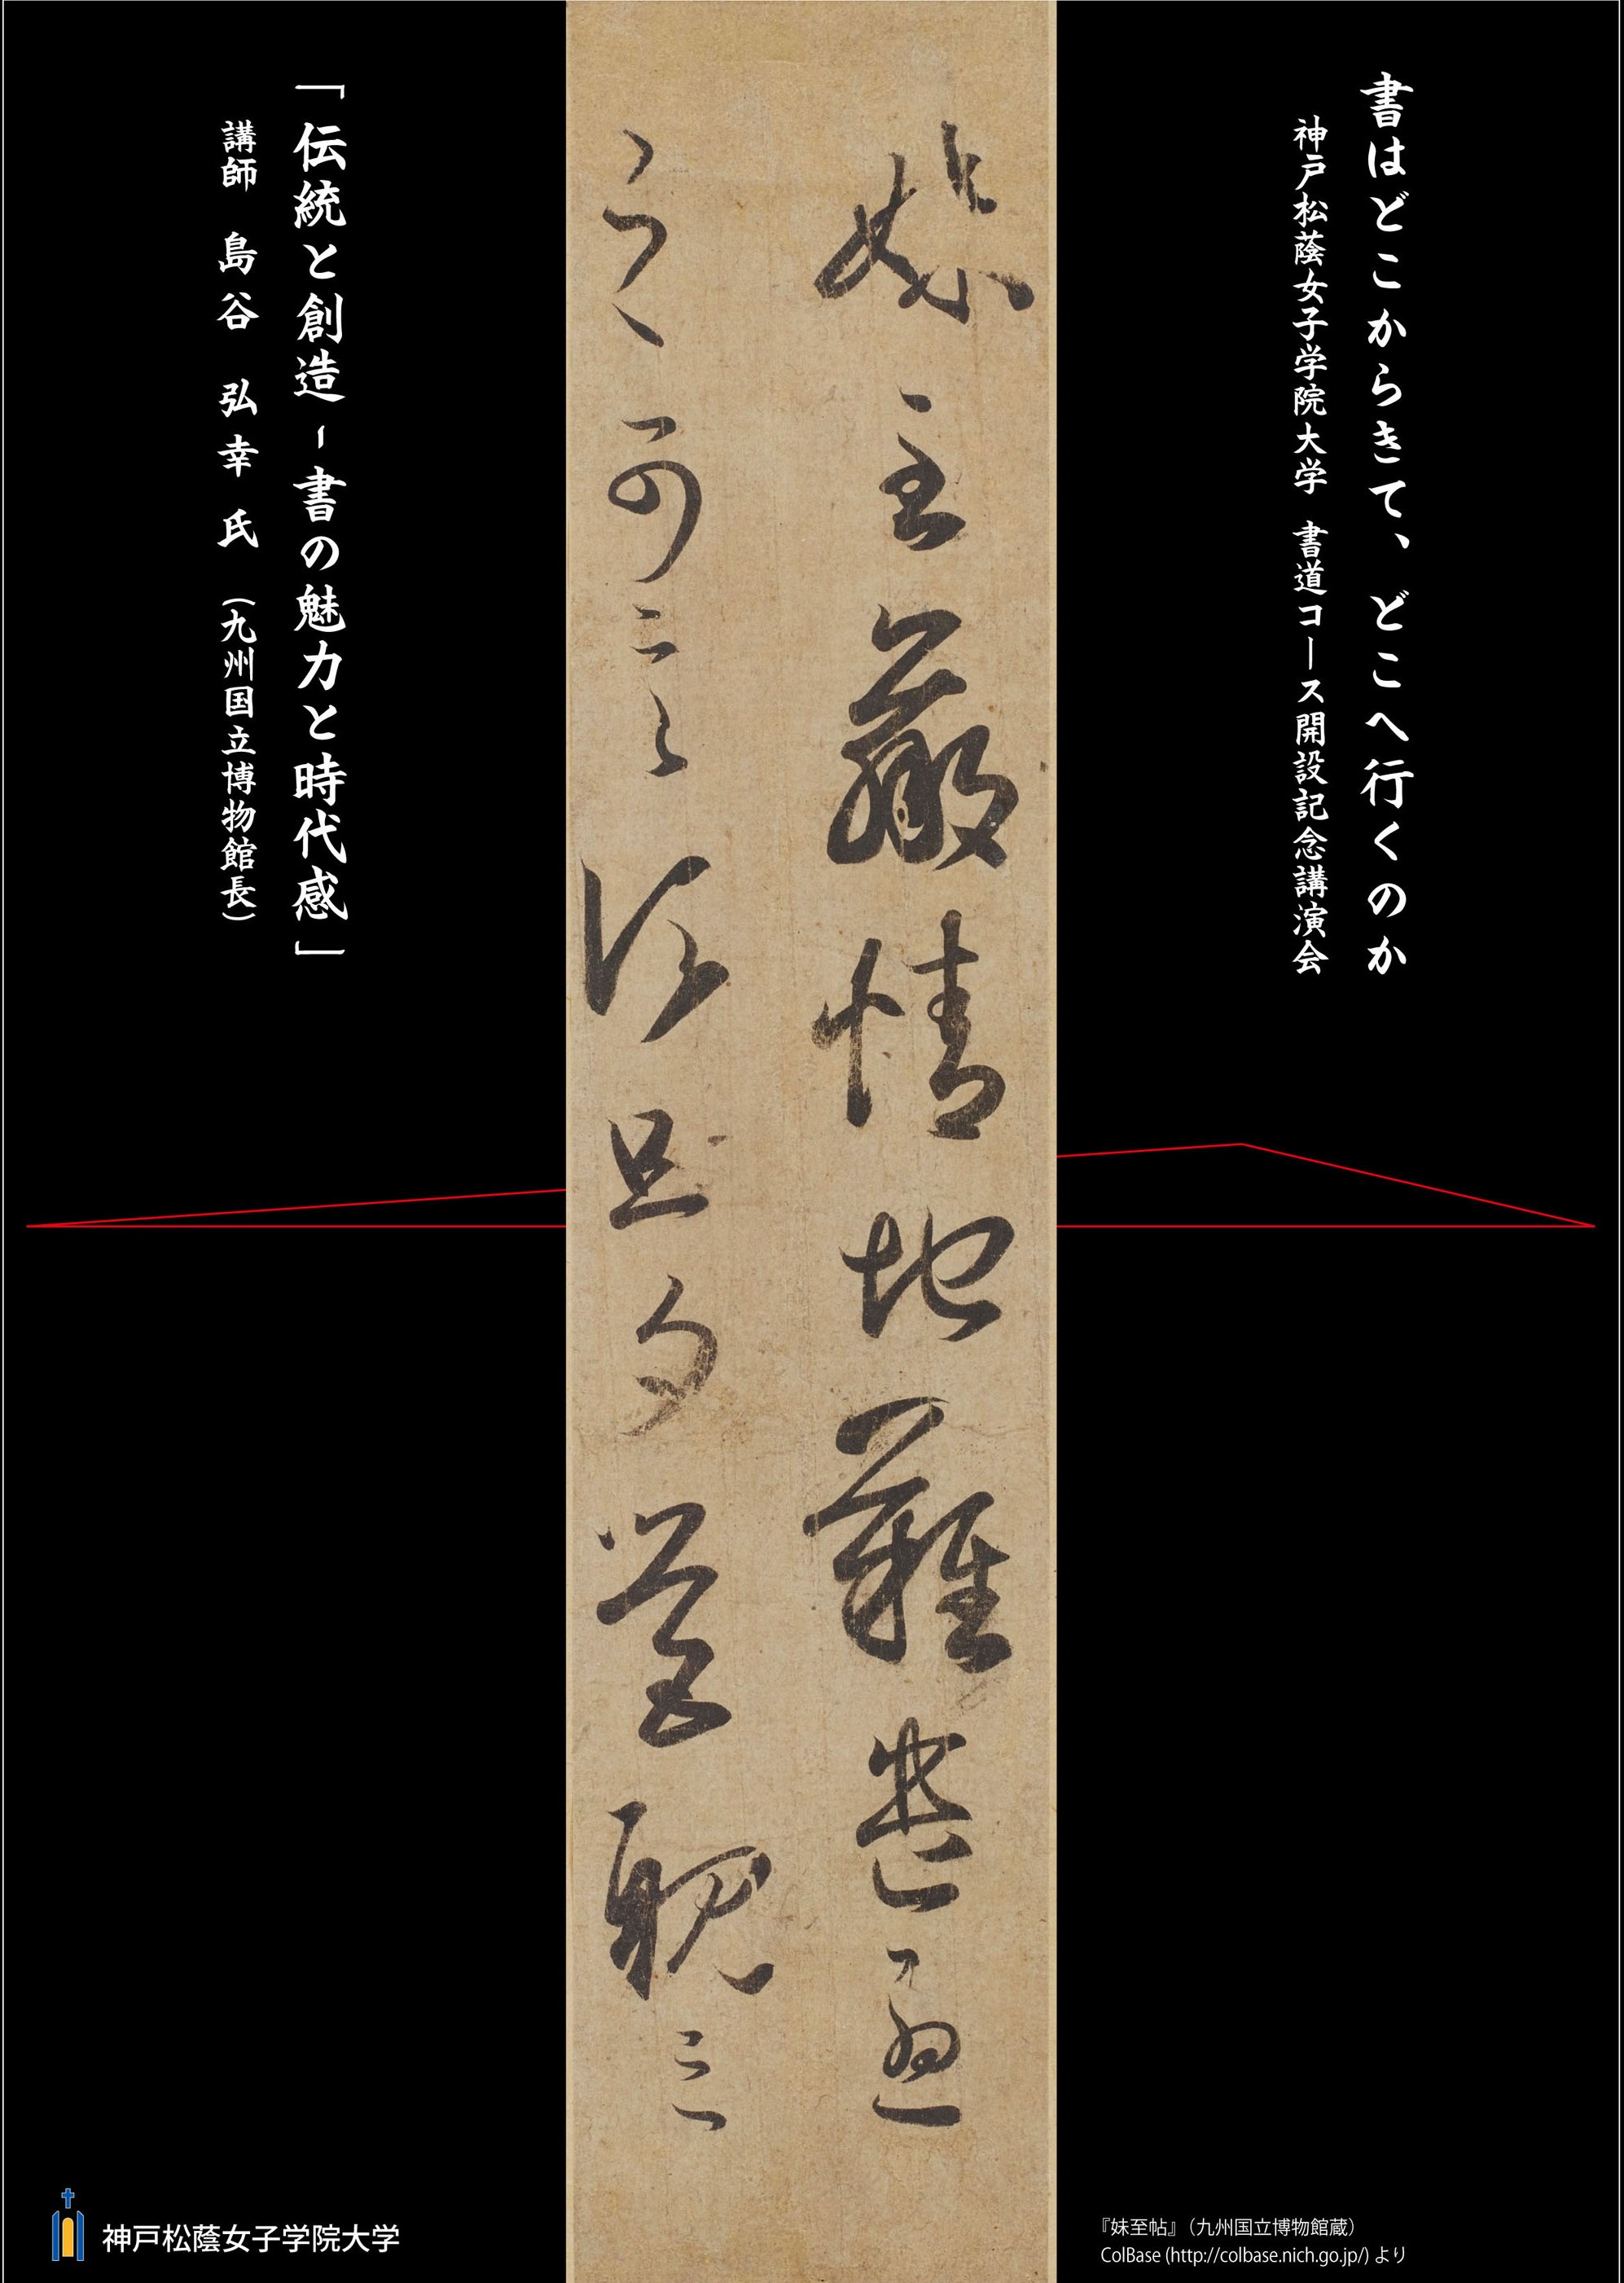 書はどこからきて、どこへ行くのか
神戸松蔭女子学院大学 書道コース開設記念講演会
妹至羸情地難遣憂
之可言須旦夕營視之
「伝統と創造-書の魅力と時代感」
講師 島谷 弘幸氏 (九州国立博物館長)
神戸松蔭女子学院大学
『妹至帖』(九州国立博物館蔵)
ColBase (http://colbase.nich.go.jp/) より